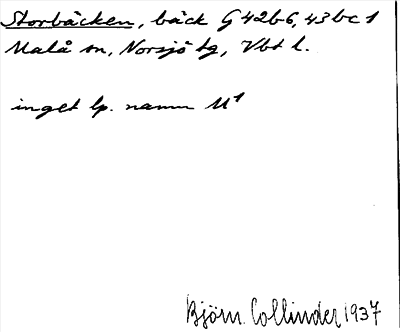 Storbäcken, bäck G 42b6, 43bc1
Malå sn, Norsjö tg, Vbt l.
inget lp. namn M¹
Björn Collinder 1937